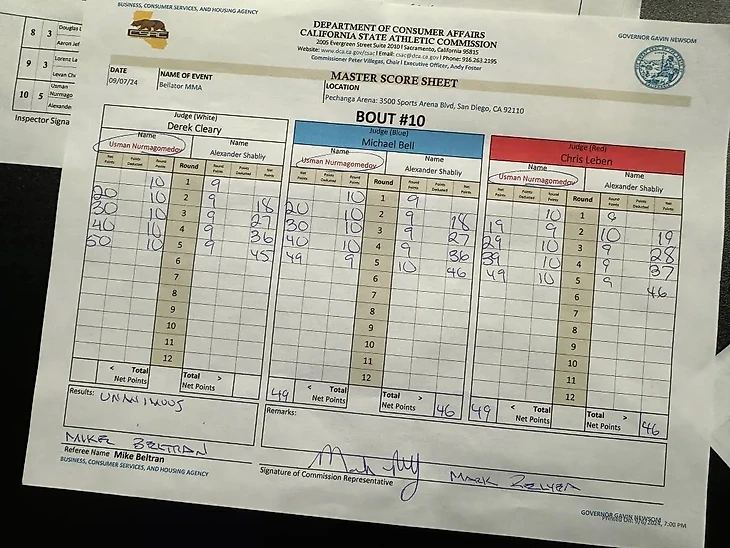 BUSINESS, CONSUMER SERVICES, AND HOUSING AGENCY
GOVERNOR GAVIN NEWSOM
DEPARTMENT OF CONSUMER AFFAIRS
CALIFORNIA STATE ATHLETIC COMMISSION
2005 Evergreen Street Suite 2010 | Sacramento, California 95815
Website: www.dca.ca.gov/csac | Email: csac@dca.ca.gov | Phone: 916.263.2195
Commissioner Peter Villegas, Chair | Executive Officer, Andy Foster
CSAC
MASTER SCORE SHEET
DATE
09/07/24
NAME OF EVENT
Bellator MMA
LOCATION
Pechanga Arena: 3500 Sports Arena Blvd, San Diego, CA 92110
BOUT #10
8 3 Douglas L
Aaron Jef
9 3 Lorenz La
Levan Cho
10 5 Usman
Nurmago
Alexander
Inspector Signa
Judge (White)
Derek Cleary
Name Name
Usman Nurmagomedov Alexander Shabliy
Net Points Points Deducted Round Points Round Round Points Points Deducted Net Points
10 1 9
20 10 2 9 18
30 10 3 9 27
40 10 4 9 36
50 10 5 9 45
6
7
8
9
10
11
12
< Total > Total
Net Points Net Points
Judge (Blue)
Michael Bell
Name Name
Usman Nurmagomedov Alexander Shabliy
Net Points Points Deducted Round Points Round Round Points Points Deducted Net Points
10 1 9
20 10 2 9 18
30 10 3 9 27
40 10 4 9 36
49 9 5 10 46
6
7
8
9
10
11
12
49 < Total Total > 46
Net Points Net Points
Judge (Red)
Chris Leben
Name Name
Usman Nurmagomedov Alexander Shabliy
Net Points Points Deducted Round Points Round Round Points Points Deducted Net Points
10 1 9
19 9 2 10 19
29 10 3 9 28
39 10 4 9 37
49 10 5 9 46
6
7
8
9
10
11
12
49 < Total Total > 46
Net Points Net Points
Results: UNANIMOUS
Remarks:
MIKE BELTRAN
Referee Name Mike Beltran
BUSINESS, CONSUMER SERVICES, AND HOUSING AGENCY
Signature of Commission Representative
MARK RELYEA
GOVERNOR GAVIN NEWSOM
7:00 PM